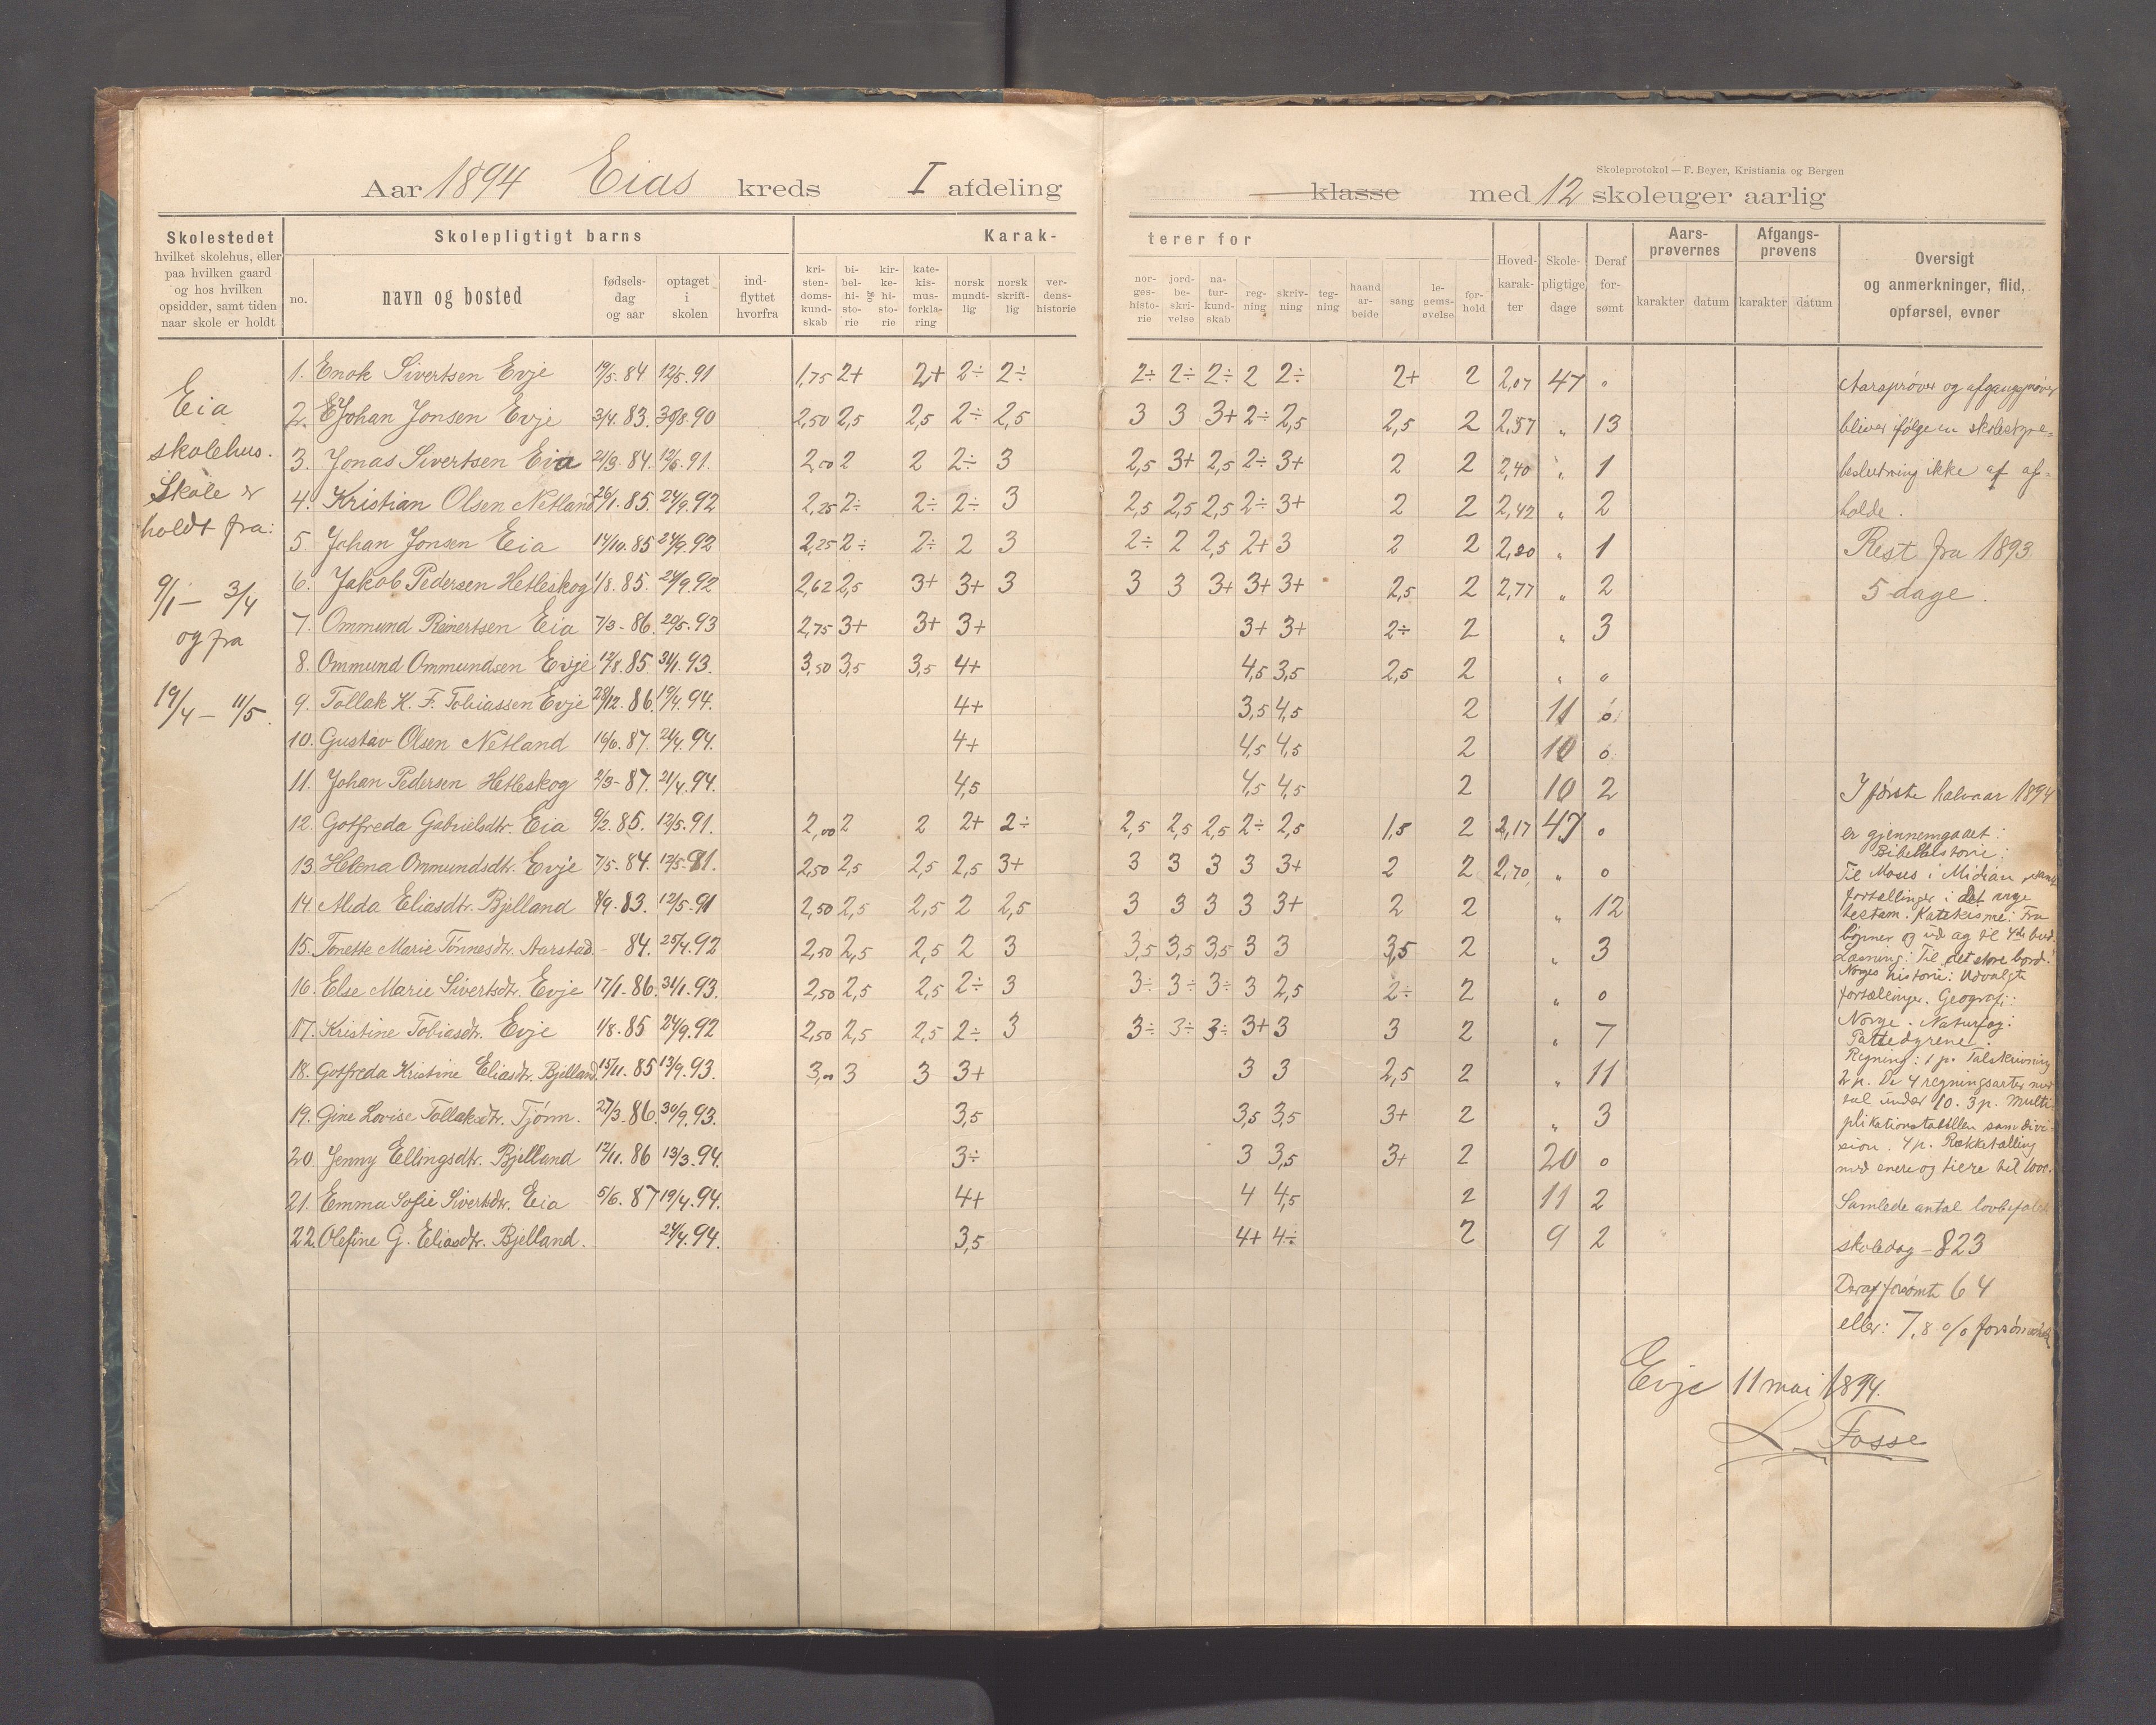 Skoleprotokol — F. Beyer, Kristiania og Bergen
Aar 1894 Eias kreds I afdeling klasse med 12 skoleuger aarlig
Skolestedet
hvilket skolehus, eller
paa hvilken gaard
og hos hvilken
opsidder, samt tiden
naar skole er holdt
Skolepligtigt barns
no.
navn og bosted
fødsels-
dag
og aar
optaget
i
skolen
ind-
flyttet
hvorfra
Karak-
terer for
kri-
sten-
doms-
kund-
skab
bi-
bel-
hi-
sto-
rie
og
kir-
ke-
hi-
sto-
rie
kate-
kis-
mus-
forkla-
ring
norsk
mundt-
lig
norsk
skrift-
lig
ver-
dens-
historie
nor-
ges-
histo-
rie
jord-
be-
skri-
velse
na-
tur-
kund-
skab
reg-
ning
skriv-
ning
teg-
ning
haand
ar-
beide
sang
le-
gems-
øvelse
for-
hold
Hoved-
karak-
ter
Skole-
pligtige
dage
Deraf
for-
sømt
Aars-
prøvernes
karakter datum
Afgangs-
prøvens
karakter datum
Oversigt
og anmerkninger, flid,
opførsel, evner
Eia
skolehus.
Skole er
holdt fra:
9/1 — 3/4
og fra
19/4 — 11/5.
1. Enok Sivertsen Evje 19/5. 84 12/5. 91 1,75 2+ 2+ 2÷ 2÷ 2÷ 2÷ 2÷ 2 2÷ 2+ 2 2,07 47 0
2. Johan Jonsen Evje 3/4. 83. 30/8. 90 2,50 2,5 2,5 2÷ 2,5 3 3 3+ 2÷ 2,5 2,5 2 2,57 „ 13
3. Jonas Sivertsen Eia 21/3. 84. 12/5. 91. 2,00 2 2 2÷ 3 2,5 3+ 2,5 2÷ 3+ 2 2 2,40 „ 1
4. Kristian Olsen Netland 26/1. 85. 24/9. 92 2,25 2÷ 2÷ 2÷ 3 2,5 2,5 2,5 2÷ 3+ 2 2 2,42 „ 2
5. Johan Jonsen Eia 14/10. 85 24/9. 92 2,25 2÷ 2÷ 2 3 2÷ 2 2,5 2+ 3 2 2 2,20 „ 1
6. Jakob Pedersen Hetleskog 1/8. 85. 24/9. 92 2,62 2,5 3+ 3+ 3 3 3 3+ 3+ 3+ 2,5 2 2,77 „ 2
7. Ommund Reinertsen Eia 7/3 - 86. 20/5. 93 2,75 3+ 3+ 3+ 3+ 3+ 2÷ 2 „ 3
8. Ommund Ommundsen Evje 12/8. 85. 31/1. 93. 3,50 3,5 3,5 4+ 4,5 3,5 2,5 2 „ 0
9. Tollak K. F. Tobiassen Evje 28/12. 86. 19/4. 94. 4+ 3,5 4,5 2 11 0
10. Gustav Olsen Netland 16/6. 87. 21/4. 94. 4+ 4,5 4,5 2 10 0
11. Johan Pedersen Hetleskog 2/3 - 87. 21/4. 94. 4,5 4,5 4,5 2 10 2
12. Gotfreda Gabrielsdtr. Eia 9/2. 85. 12/5. 91. 2,00 2 2 2+ 2÷ 2,5 2,5 2,5 2÷ 2,5 1,5 2 2,17 47 0
13. Helena Ommundsdtr. Evje 7/5. 84. 12/5. 91. 2,50 2,5 2,5 2,5 3+ 3 3 3 3 3+ 2 2 2,70 „ 0
14. Alida Eliasdtr. Bjelland 8/9. 83. 12/5. 91 2,50 2,5 2,5 2 2,5 3 3 3 3 3+ 2 2 „ 12
15. Tonette Marie Tønnesdtr. Aarstad - 84. 25/4. 92 2,50 2,5 2,5 2 3 3,5 3,5 3,5 3 3 3,5 2 „ 3
16. Else Marie Sivertsdtr. Evje 17/1 - 86. 31/1. 93. 2,50 2,5 2,5 2÷ 3 3÷ 3÷ 3÷ 3 2,5 2÷ 2 „ 0
17. Kristine Tobiasdtr. Evje 1/8. 85 24/9. 92 2,50 2,5 2,5 2÷ 3 3÷ 3÷ 3÷ 3+ 3 3 2 „ 7
18. Gotfreda Kristine Eliasdtr. Bjelland 15/11. 85 13/9. 93. 3,00 3 3 3+ 3 3 2,5 2 „ 11
19. Gine Lovise Tollaksdtr. Tjørn. 27/3 - 86 30/9. 93. 3,5 3,5 3,5 3+ 2 „ 3
20. Jenny Ellingsdtr. Bjelland 12/11. 86 13/3. 94. 3÷ 3 3,5 3+ 2 20 0
21. Emma Sofie Sivertsdtr. Eia 5/6. 87 19/4. 94. 4+ 4 4,5 2 11 2
22. Olefine G. Eliasdtr. Bjelland. 24/4. 94. 3,5 4+ 4÷ 2 9 2
Aarsprøver og afgangsprøver
bliver ifølge en skolestyre-
beslutning ikke af af-
holde.
Rest fra 1893
5 dage.
I første halvaar 1894
er gjennemgaaet:
Bibelhistorie:
Til Moses i Midian
fortællinger i det nye
testam. Katekisme: Fra
til 4de bud.
Læsning: Til det store bord.
Norges historie: Udvalgte
fortælinger. Geografi:
Norge. Naturfag:
Pattedyrene.
Regning: 1 p. Talskrivning
2 p. De 4 regningsarter med
tal under 10. 3 p. Multi-
plikationstabellen sam divi-
sion. 4 p. Rækketælling
med enere og tiere til 1000.
Samlede antal lovbefalede
skoledag — 823
Deraf forsømt 64
eller: 7,8 %
Evje 11 mai 1894.
L. Fosse